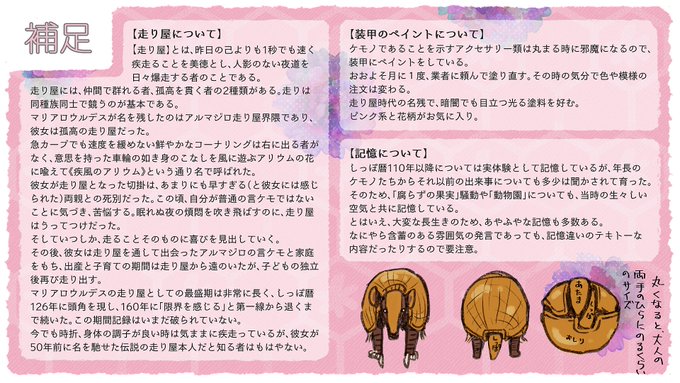 補足
【走り屋について】
【走り屋】とは、昨日の己よりも1秒でも速く
疾走ることを美徳とし、人影のない夜道を
日々爆走する者のことである。
走り屋には、仲間で群れる者、孤高を貫く者の2種類がある。走りは
同種族同士で競うのが基本である。
マリアロウルデスが名を残したのはアルマジロ走り屋界隈であり、
彼女は孤高の走り屋だった。
急カーブでも速度を緩めない鮮やかなコーナリングは右に出る者が
なく、意思を持った車輪の如き身のこなしを風に遊ぶアリウムの花
に喩えて《疾風のアリウム》という通り名で呼ばれた。
彼女が走り屋となった切掛は、あまりにも早すぎる(と彼女には感じ
られた)両親との死別だった。この頃、自分が普通の言ケモではない
ことに気づき、苦悩する。眠れぬ夜の煩悶を吹き飛ばすのに、走り屋
はうってつけだった。
そしていつしか、走ることそのものに喜びを見出していく。
その後、彼女は走り屋を通して出会ったアルマジロの言ケモと家庭
をもち、出産と子育ての期間は走り屋から遠のいたが、子どもの独立
後再び走り出す。
マリアロウルデスの走り屋としての最盛期は非常に長く、しっぽ暦
126年に頭角を現し、160年に「限界を感じる」と第一線から退くま
で続いた。この期間記録はいまだ破られていない。
今でも時折、身体の調子が良い時は気ままに疾走っているが、彼女が
50年前に名を馳せた伝説の走り屋本人だと知る者はもはやない。
【装甲のペイントについて】
ケモノであることを示すアクセサリー類は丸まる時に邪魔になるので、
装甲にペイントをしている。
おおよそ月に1度、業者に頼んで塗り直す。その時の気分で色や模様の
注文は変わる。
走り屋時代の名残で、暗闇でも目立つ光る塗料を好む。
ピンク系と花柄がお気に入り。
【記憶について】
しっぽ暦110年以降については実体験として記憶しているが、年長の
ケモノたちからそれ以前の出来事についても多少は聞かされて育った。
そのため、「腐らずの果実」騒動や「動物園」についても、当時の生々しい
空気と共に記憶している。
とはいえ、大変な長生きのため、あやふやな記憶も多数ある。
なにやら含蓄のある雰囲気の発言であっても、記憶違いのテキトーな
内容だったりするので要注意。
しっぽ
あたま
しっぽ
おしり
丸くなると、大人の
両手のひらにのるくらい
のサイズ